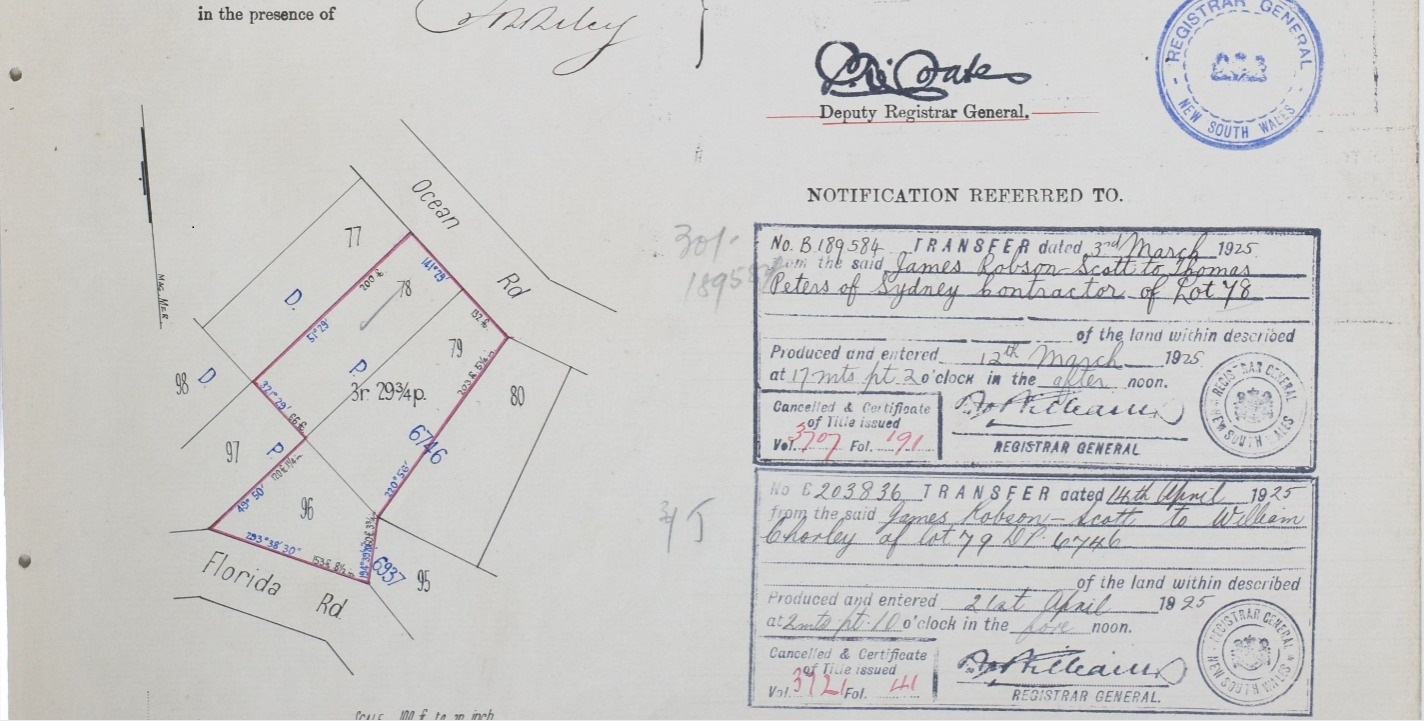 in the presence of
Deputy Registrar General.
REGISTRAR GENERAL
NEW SOUTH WALES
NOTIFICATION REFERRED TO.
30/-
18958
No. B 189584 TRANSFER dated 3rd March 1925
from the said James Robson-Scott to Thomas
Peters of Sydney Contractor of Lot 78
of the land within described
Produced and entered 12th March 1925
at 17 mts pt. 2 o'clock in the after noon.
Cancelled & Certificate
of Title issued
Vol. 3707 Fol. 191
REGISTRAR GENERAL
REGISTRAR GENERAL
NEW SOUTH WALES
No 203836 TRANSFER dated 14th April 1925
from the said James Robson-Scott to William
Chorley of lot 79 DP. 6746
of the land within described
Produced and entered 21st April 1925
at 2 mts pt. 10 o'clock in the fore noon.
Cancelled & Certificate
of Title issued
Vol. 3721 Fol. 41
REGISTRAR GENERAL.
REGISTRAR GENERAL
NEW SOUTH WALES
Ocean
Rd
Mag. Mer.
77
141° 29'
200 f.
78
D.
51° 29'
132 f.
79
P.
3r. 29¾p.
80
98
D.
321° 29'
66 f.
6746
97
P.
220° 56'
49° 50'
96
293° 38' 30"
6937
95
Florida
Rd.
SCALE 100 f. to an inch